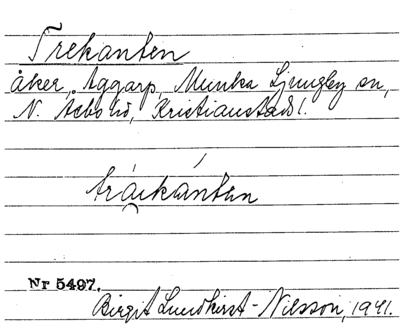 Trekanten
åker, Aggarp, Munka Ljungby sn,
N. Åsbo hd, Kristianstads l.
Nr 5497.
Birgit Lundkvist-Nilsson, 1941.